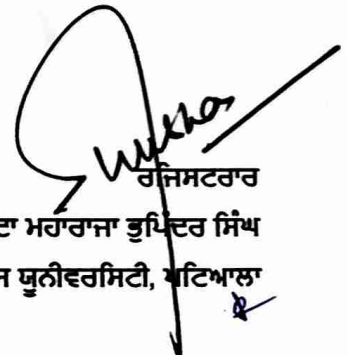 ਰਜਿਸਟਰਾਰ
ਦਾ ਮਹਾਰਾਜਾ ਭੁਪਿੰਦਰ ਸਿੰਘ
ਯੂਨੀਵਰਸਿਟੀ, ਪਟਿਆਲਾ